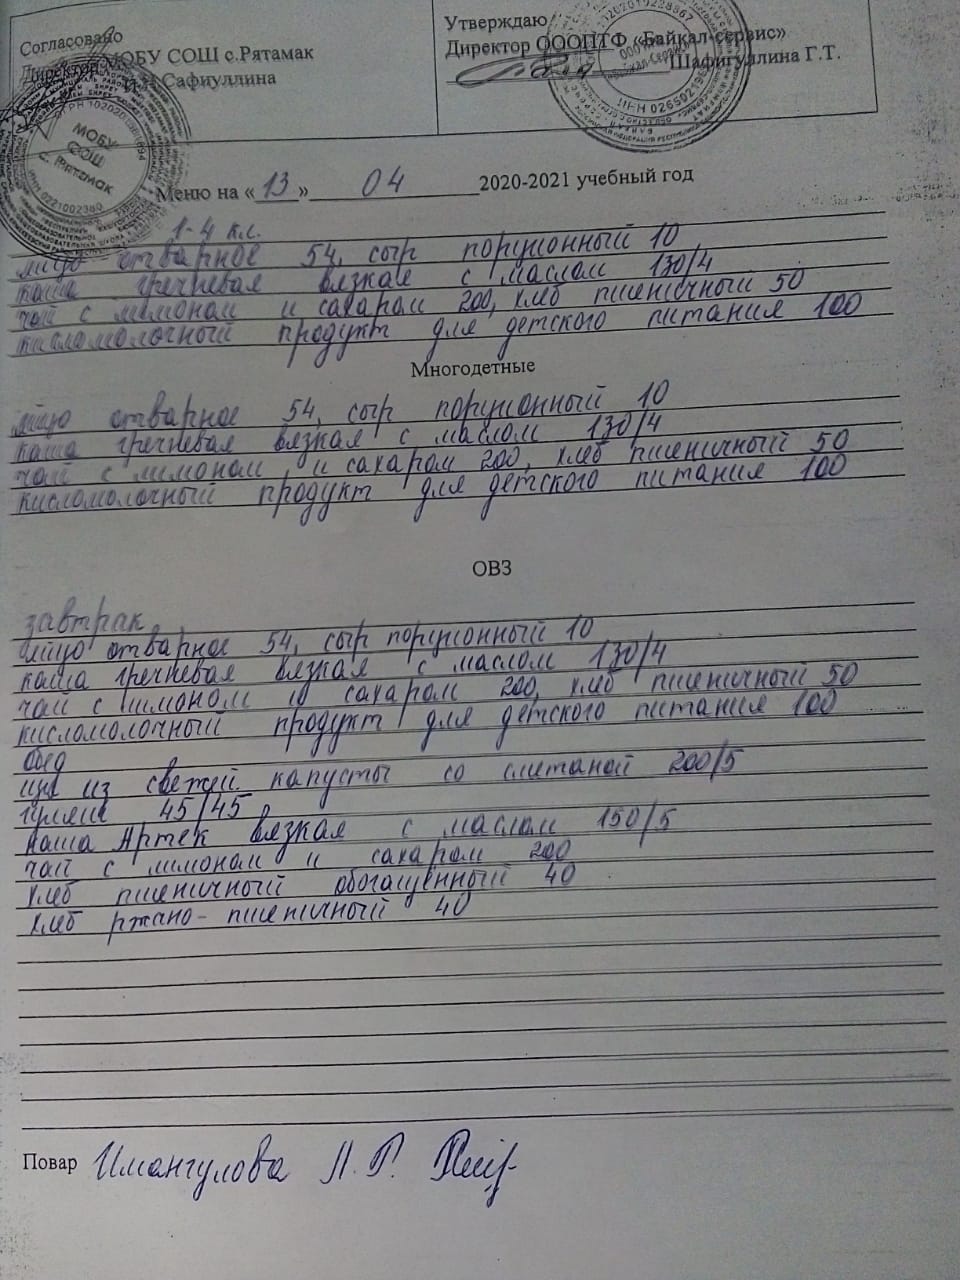 Согласовано
Директор МОБУ СОШ с.Рятамак
И.М.Сафиуллина
Утверждаю
Директор ОООПТФ «Байкал-сервис»
Шафигуллина Г.Т.
МОБУ
СОШ
с. Рятамак
ИНН 0221002380
Меню на «13» 04 2020-2021 учебный год
1-4 кл.
яйцо отварное 54, сыр порционный 10
каша гречневая вязкая с маслом 130/4
чай с лимоном и сахаром 200, хлеб пшеничный 50
кисломолочный продукт для детского питания 100
Многодетные
яйцо отварное 54, сыр порционный 10
каша гречневая вязкая с маслом 130/4
чай с лимоном и сахаром 200, хлеб пшеничный 50
кисломолочный продукт для детского питания 100
ОВЗ
завтрак
яйцо отварное 54, сыр порционный 10
каша гречневая вязкая с маслом 130/4
чай с лимоном и сахаром 200, хлеб пшеничный 50
кисломолочный продукт для детского питания 100
обед
щи из свежей капусты со сметаной 200/5
гуляш 45/45
каша Артек вязкая с маслом 150/5
чай с лимоном и сахаром 200
хлеб пшеничный обогащенный 40
хлеб ржано-пшеничный 40
Повар Имангулова Л.Р.